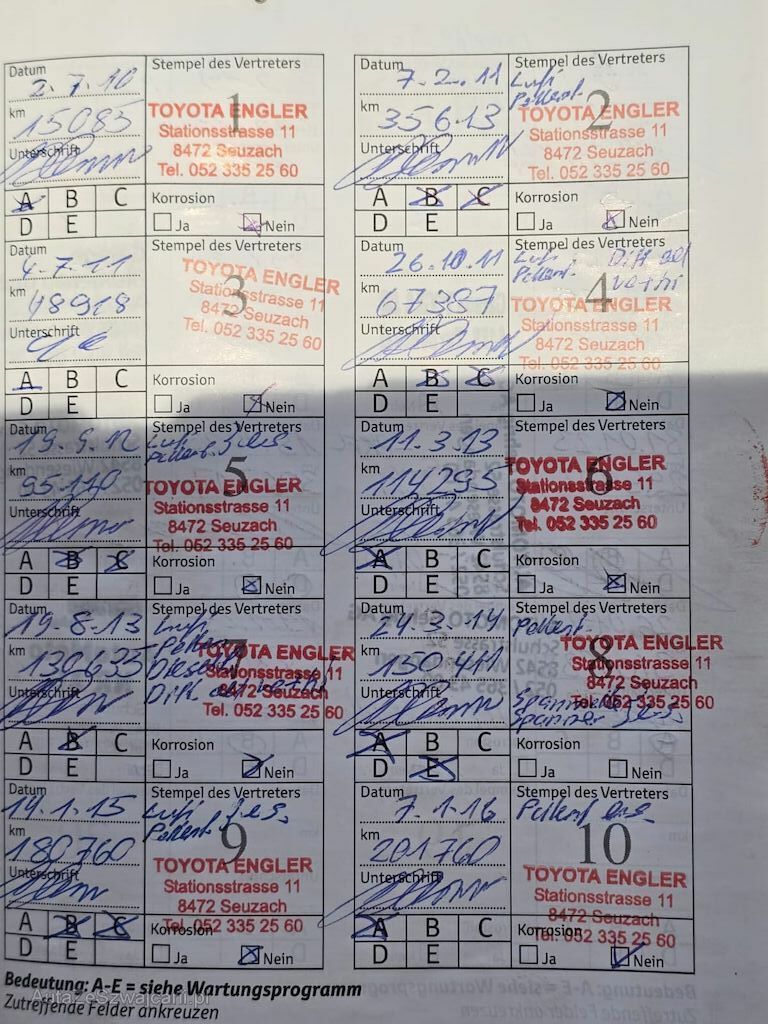 Datum
2.7.10
km
15085
Unterschrift
Stempel des Vertreters
1
TOYOTA ENGLER
Stationsstrasse 11
8472 Seuzach
Tel. 052 335 25 60
A B C
D E
Korrosion
Ja Nein
Datum
7.2.11
km
35613
Unterschrift
Stempel des Vertreters
Luft
Pollenf.
2
TOYOTA ENGLER
Stationsstrasse 11
8472 Seuzach
Tel. 052 335 25 60
A B C
D E
Korrosion
Ja Nein
Datum
4.7.11
km
48918
Unterschrift
Stempel des Vertreters
3
TOYOTA ENGLER
Stationsstrasse 11
8472 Seuzach
Tel. 052 335 25 60
A B C
D E
Korrosion
Ja Nein
Datum
26.10.11
km
67387
Unterschrift
Stempel des Vertreters
Luft
Pollenf.
4
TOYOTA ENGLER
Stationsstrasse 11
8472 Seuzach
Tel. 052 335 25 60
A B C
D E
Korrosion
Ja Nein
Datum
19.9.12
km
95170
Unterschrift
Stempel des Vertreters
Luft
Pollenf.
5
TOYOTA ENGLER
Stationsstrasse 11
8472 Seuzach
Tel. 052 335 25 60
A B C
D E
Korrosion
Ja Nein
Datum
11.3.13
km
114295
Unterschrift
Stempel des Vertreters
6
TOYOTA ENGLER
Stationsstrasse 11
8472 Seuzach
Tel. 052 335 25 60
A B C
D E
Korrosion
Ja Nein
Datum
19.8.13
km
130635
Unterschrift
Stempel des Vertreters
Luft
7
TOYOTA ENGLER
Stationsstrasse 11
8472 Seuzach
Tel. 052 335 25 60
A B C
D E
Korrosion
Ja Nein
Datum
24.3.14
km
150411
Unterschrift
Stempel des Vertreters
Pollenf.
8
TOYOTA ENGLER
Stationsstrasse 11
8472 Seuzach
Tel. 052 335 25 60
A B C
D E
Korrosion
Ja Nein
Datum
14.1.15
km
180760
Unterschrift
Luft
Pollenf.
Stempel des Vertreters
9
TOYOTA ENGLER
Stationsstrasse 11
8472 Seuzach
Tel. 052 335 25 60
A B C
D E
Korrosion
Ja Nein
Datum
7.1.16
km
201760
Unterschrift
Stempel des Vertreters
Pollenf
10
TOYOTA ENGLER
Stationsstrasse 11
8472 Seuzach
Tel. 052 335 25 60
A B C
D E
Korrosion
Ja Nein
Bedeutung: A-E = siehe Wartungsprogramm
Zutreffende Felder ankreuzen
AutazeSzwajcarii.pl